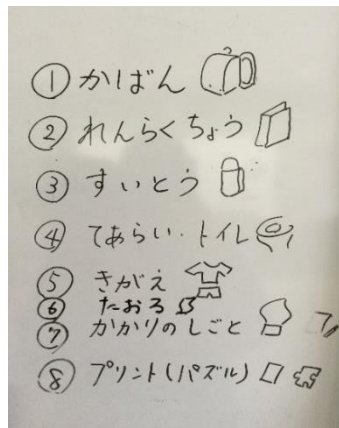 ① かばん
② れんらくちょう
③ すいとう
④ てあらい・トイレ
⑤ きがえ
⑥ たおる
⑦ かかりのしごと
⑧ プリント(パズル)